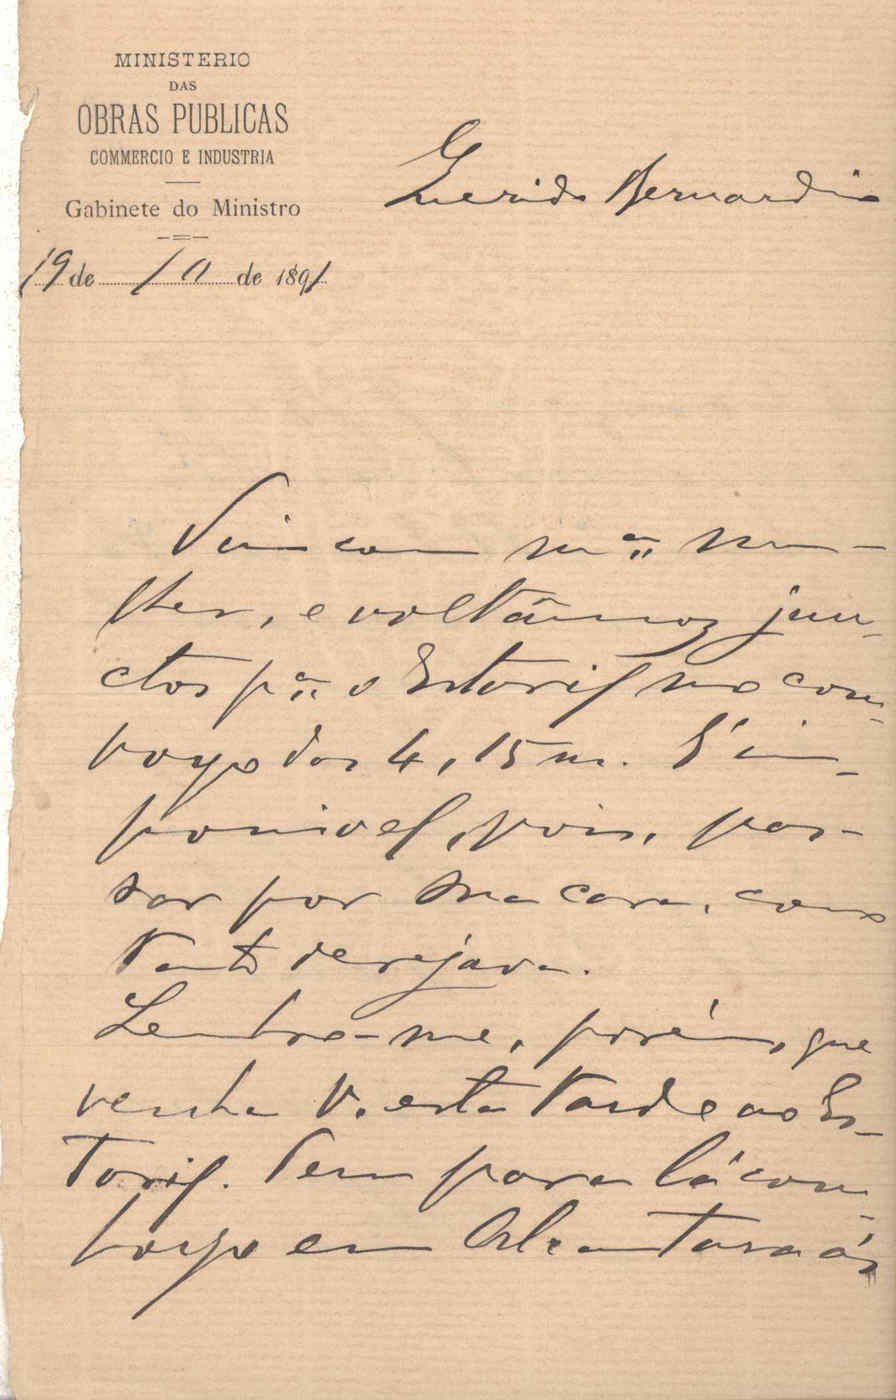 MINISTERIO
DAS
OBRAS PUBLICAS
COMMERCIO E INDUSTRIA
Gabinete do Ministro
19 de 10 de 1891
Querido Bernardino
Vim com m.ª mu-
lher, e voltâmos jun-
ctos p.ª o Estoril no com-
boyo das 4,15 m. É im-
possivel, pois, pas-
sar por sua casa, como
tanto desejava.
Lembro-me, porém, que
venha V. esta tarde ao Es-
toril. Tem para lá com-
boyo em Alcantara ás